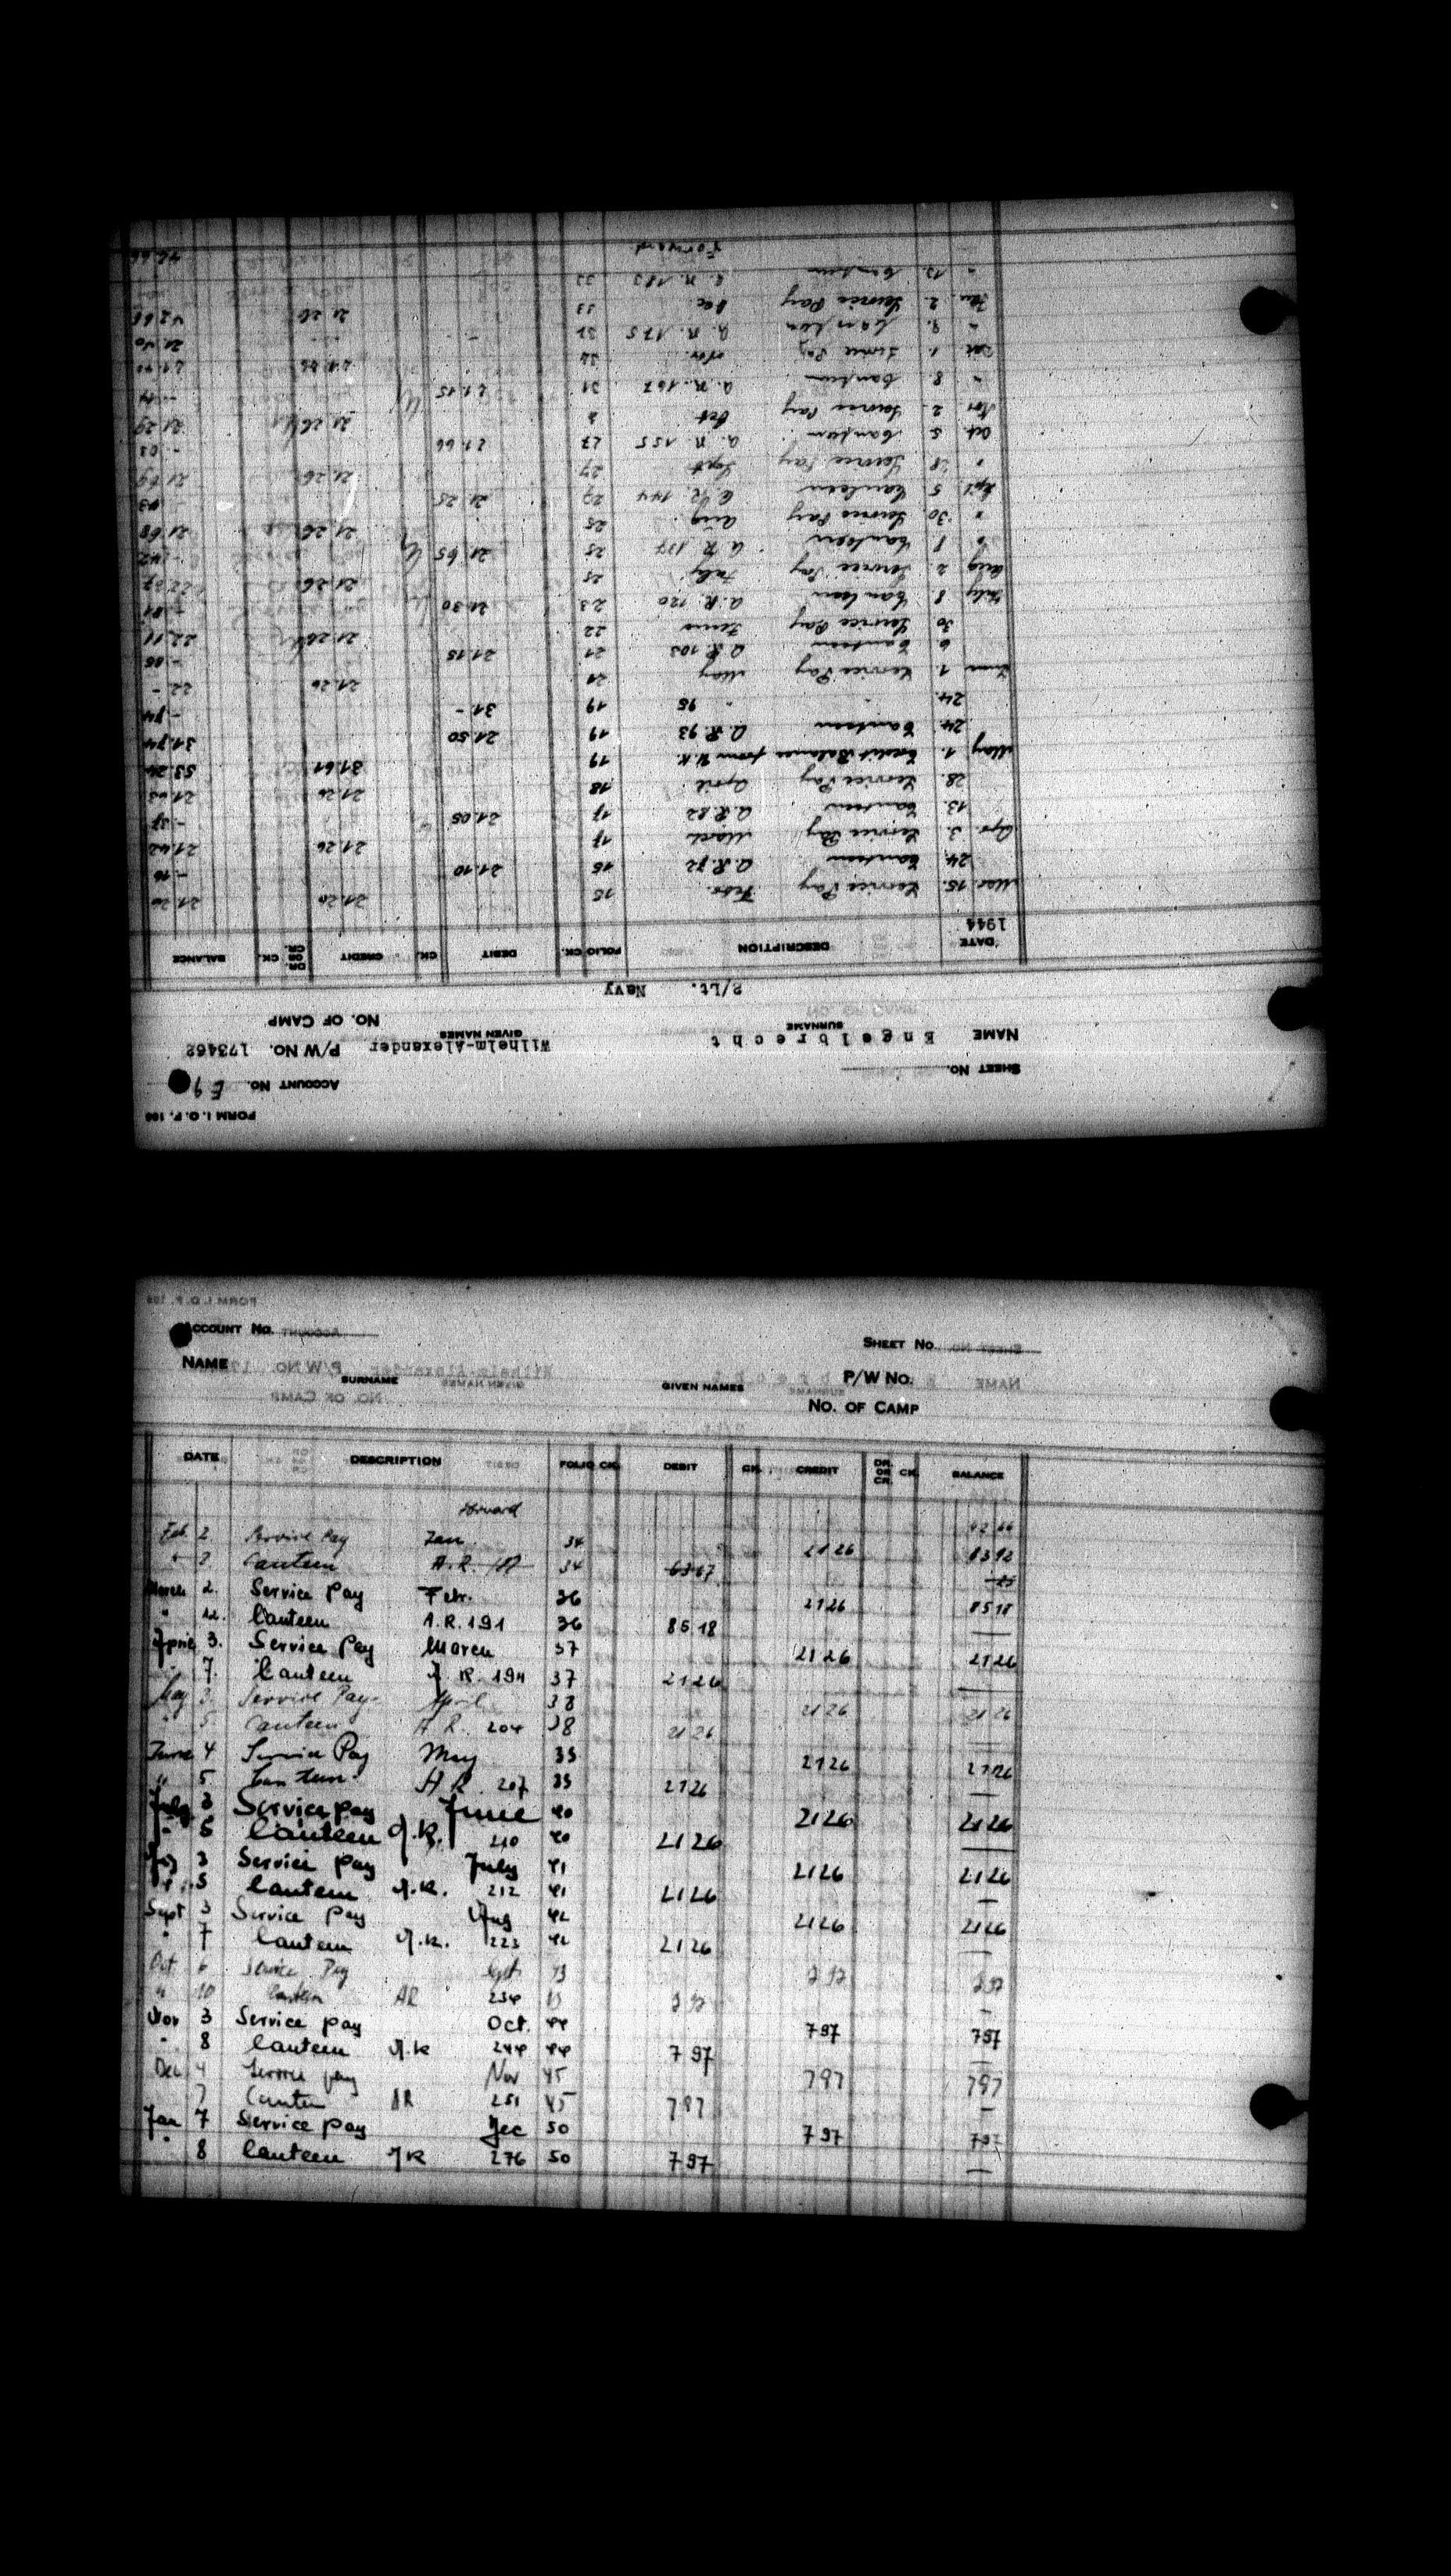 FORM I. O. P. 166
ACCOUNT NO. E 9
SHEET NO.
NAME Engelbrecht Wilhelm-Alexander P/W NO. 173462
SURNAME GIVEN NAMES
NO. OF CAMP
2/Lt. Navy
DATE DESCRIPTION FOLIO CK. DEBIT CK. CREDIT DR. OR CR. CK. BALANCE
1944
Mar. 15. Service Pay Febr. 15 21.26 21.26
24. Canteen A.R. 72 15 21.10 -.16
Apr. 3. Service Pay March 17 21.26 21.42
13. Canteen A.R. 82 17 21.05 -.37
28. Service Pay April 18 21.26 21.63
May 1. Credit Balance from U.K. 19 31.61 53.24
24. Canteen A.R. 93 19 21.50 31.74
24. " " 95 19 31.- -.74
June 1. Service Pay May 21 21.26 22.-
6. Canteen A.R. 103 21 21.15 -.85
30 Service Pay June 22 21.26 22.11
July 8 Canteen A.R. 120 23 21.30 -.81
Aug 2 Service Pay July 25 21.26 22.07
" 8 Canteen A.R. 137 25 21.65 -.42
" 30. Service Pay Aug. 25 21.26 21.68
Sept. 5 Canteen A.R. 144 27 21.25
" 28 Service Pay Sept 27 21.26 21.69
Oct 5 Canteen A.R. 155 27 21.66 -.03
Nov 2. Service Pay Oct 21.26 21.29
" 8 Canteen A.R. 167 31 21.15 -.14
Dec 1 Service Pay Nov. 32 21.26 21.40
" 9. Canteen A.R. 175 32 - - 21.40
Jan. 2. Service Pay Dec 33 21.26 42.66
" 13. Canteen A.R. 183 33
Forward 42.66
ACCOUNT NO. SHEET NO.
NAME P/W NO.
SURNAME GIVEN NAMES
NO. OF CAMP
DATE DESCRIPTION FOLIO CK. DEBIT CK. CREDIT DR. OR CR. CK. BALANCE
Forward 42 66
Feb. 2. Service Pay Jan. 34 21 26 63 92
" 2. Canteen A.R. 34 63 67
March 2. Service Pay Febr. 36 21 26 85 18
" 12. Canteen A.R. 191 36 85 18 —
April 3. Service Pay March 37 21 26 21 26
" 7. Canteen A.R. 194 37 21 26 —
May 3. Service Pay April 38 21 26 21 26
" 5. Canteen A.R. 204 38 21 26 —
June 4 Service Pay May 39 21 26 21 26
" 5 Canteen A.R. 207 39 21 26 —
July 3 Service pay June 40 21 26 21 26
" 5 Canteen A.R. 210 40 21 26 —
Aug 3 Service pay July 41 21 26 21 26
" 5 Canteen A.R. 212 41 21 26 —
Sept 3 Service pay Aug 42 21 26 21 26
" 7 Canteen A.R. 223 42 21 26 —
Oct 6 Service Pay Sept 43 7 97 7 97
" 10 Canteen AR 234 43 7 97 —
Nov 3 Service pay Oct. 44 7 97 7 97
" 8 Canteen A.R 244 44 7 97 —
Dec 4 Service pay Nov 45 7 97 7 97
7 Canteen AR 251 45 7 97 —
Jan 7 Service pay Dec 50 7 97 7 97
" 8 Canteen AR 276 50 7 97 —